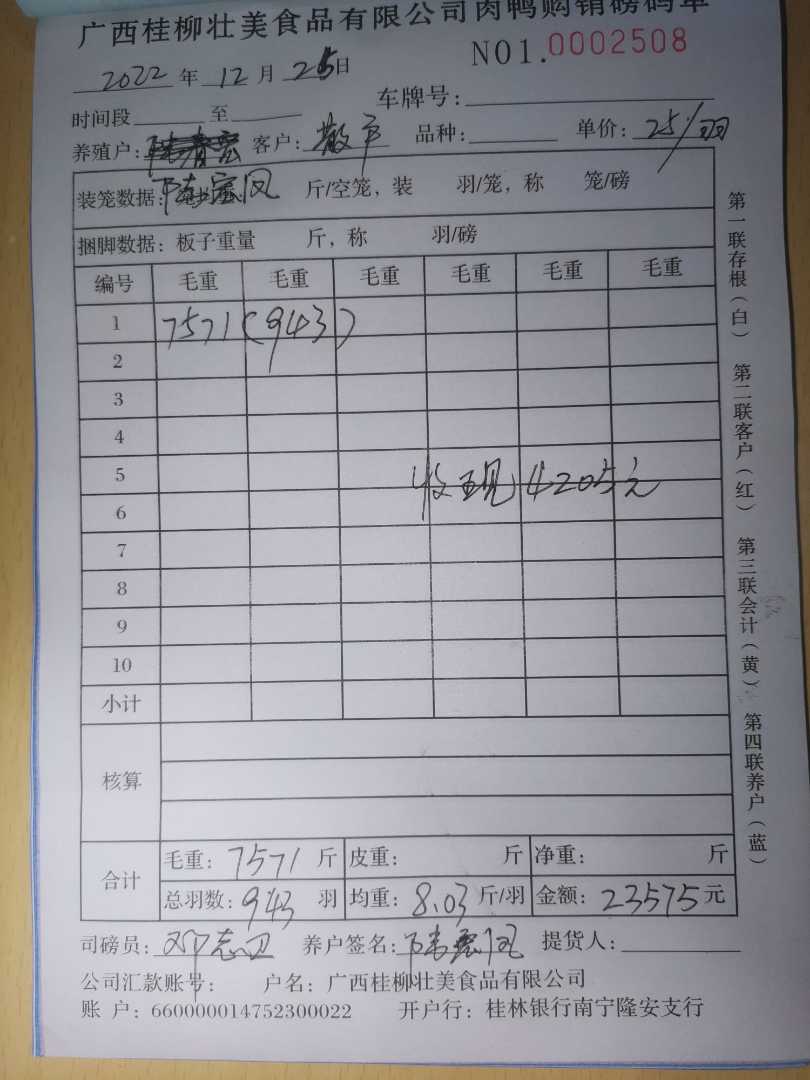 广西桂柳壮美食品有限公司肉鸭购销磅码单
NO1.0002508
2022年12月25日
时间段 至 车牌号:
养殖户: 客户:散户 品种: 单价:25/羽
装笼数据: 斤/空笼,装 羽/笼,称 笼/磅
捆脚数据:板子重量 斤,称 羽/磅
编号 毛重 毛重 毛重 毛重 毛重 毛重
1 7571(943)
2
3
4
5 收现4205元
6
7
8
9
10
小计
核算
合计 毛重:7571斤 皮重: 斤 净重: 斤
总羽数:943羽 均重:8.03斤/羽 金额:23575元
司磅员:邓志卫 养户签名: 提货人:
公司汇款账号: 户名:广西桂柳壮美食品有限公司
账 户:660000014752300022 开户行:桂林银行南宁隆安支行
第一联存根(白) 第二联客户(红) 第三联会计(黄) 第四联养户(蓝)